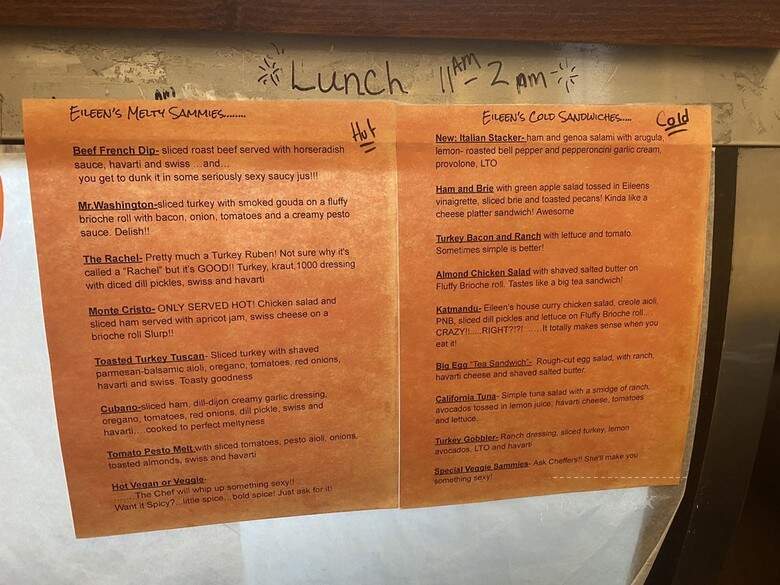 Lunch 11AM - 2 pm
AM
EILEEN'S MELTY SAMMIES........
Hot
Beef French Dip- sliced roast beef served with horseradish
sauce, havarti and swiss ...and...
you get to dunk it in some seriously sexy saucy jus!!!
Mr.Washington-sliced turkey with smoked gouda on a fluffy
brioche roll with bacon, onion, tomatoes and a creamy pesto
sauce. Delish!!
The Rachel- Pretty much a Turkey Ruben! Not sure why it's
called a "Rachel" but it's GOOD!! Turkey, kraut,1000 dressing
with diced dill pickles, swiss and havarti
Monte Cristo- ONLY SERVED HOT! Chicken salad and
sliced ham served with apricot jam, swiss cheese on a
brioche roll Slurp!!
Toasted Turkey Tuscan- Sliced turkey with shaved
parmesan-balsamic aioli, oregano, tomatoes, red onions,
havarti and swiss. Toasty goodness
Cubano-sliced ham, dill-dijon creamy garlic dressing,
oregano, tomatoes, red onions, dill pickle, swiss and
havarti....cooked to perfect meltyness
Tomato Pesto Melt with sliced tomatoes, pesto aioli, onions,
toasted almonds, swiss and havarti
Hot Vegan or Veggie-
.......The Chef will whip up something sexy!!
Want it Spicy?...little spice...bold spice! Just ask for it!
EILEEN'S COLD SANDWICHES....
Cold
New: Italian Stacker- ham and genoa salami with arugula,
lemon- roasted bell pepper and pepperoncini garlic cream,
provolone, LTO
Ham and Brie with green apple salad tossed in Eileens
vinaigrette, sliced brie and toasted pecans! Kinda like a
cheese platter sandwich! Awesome
Turkey Bacon and Ranch with lettuce and tomato.
Sometimes simple is better!
Almond Chicken Salad with shaved salted butter on
Fluffy Brioche roll. Tastes like a big tea sandwich!
Katmandu- Eileen's house curry chicken salad, creole aioli,
PNB, sliced dill pickles and lettuce on Fluffy Brioche roll...
CRAZY!!.....RIGHT?!?! ......It totally makes sense when you
eat it!
Big Egg "Tea Sandwich"- Rough-cut egg salad, with ranch,
havarti cheese and shaved salted butter.
California Tuna- Simple tuna salad with a smidge of ranch,
avocados tossed in lemon juice, havarti cheese, tomatoes
and lettuce.
Turkey Gobbler- Ranch dressing, sliced turkey, lemon
avocados, LTO and havarti
Special Veggie Sammies- Ask Cheffers!! She'll make you
something sexy!